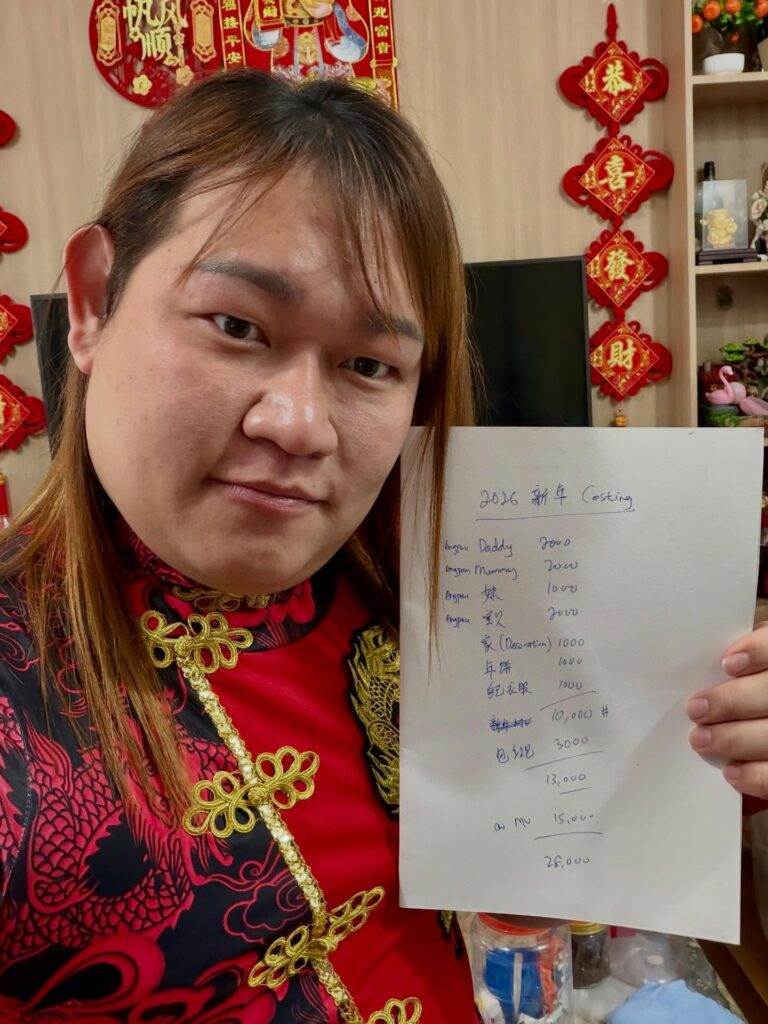 帆风顺
接福平安
財
迎富貴
恭
喜
發
財
2026 新年 Costing
Angpau Daddy 2000
Angpau Mummy 2000
Angpau 妹 1000
Angpau 2000
家 (Decoration) 1000
年饼 1000
自己衣服 1000
10,000 #
3000
13,000
MV 15,000
28,000